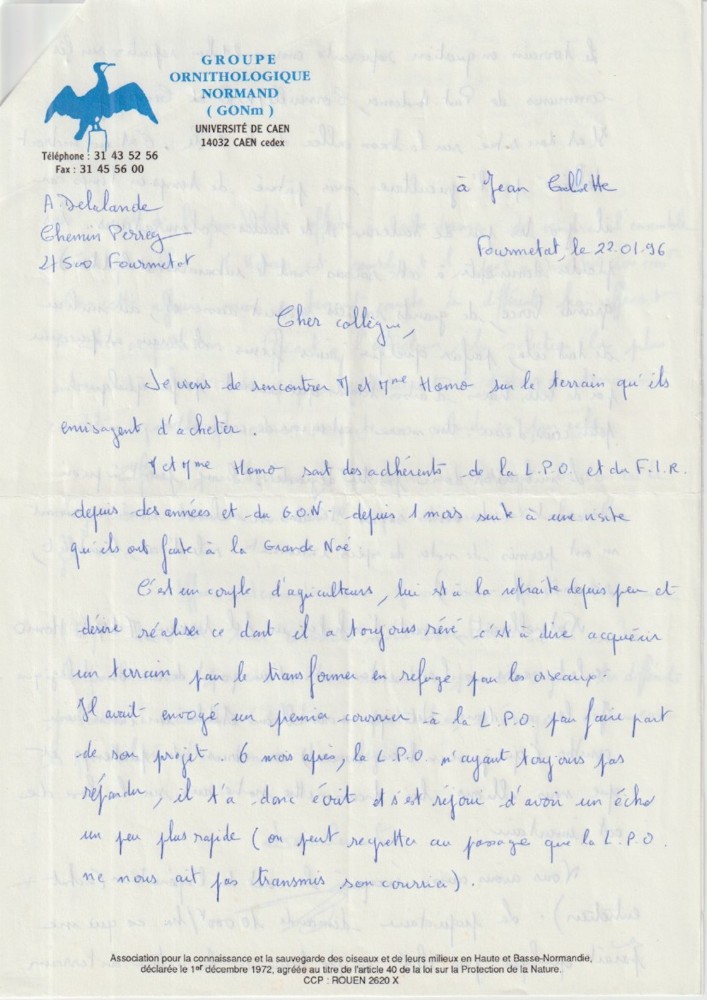 GROUPE
ORNITHOLOGIQUE
NORMAND
( GONm )
UNIVERSITÉ DE CAEN
14032 CAEN cedex
Téléphone : 31 43 52 56
Fax : 31 45 56 00
à Jean Collette
A Delalande
Chemin Perrey
27500 Fourmetot
Fourmetot, le 22.01.96
Cher collègue,
Je viens de rencontrer M et Mme Homo sur le terrain qu'ils
envisagent d'acheter.
M et Mme Homo sont des adhérents de la L.P.O. et du F.I.R.
depuis des années et du G.O.N. depuis 1 mois suite à une visite
qu'ils ont faite à la Grande Noé
C'est un couple d'agriculteurs, lui est à la retraite depuis peu et
désire réaliser ce dont il a toujours rêvé c'est à dire acquérir
un terrain pour le transformer en refuge pour les oiseaux.
Il avait envoyé un premier courrier à la L.P.O. pour faire part
de son projet. 6 mois après, la L.P.O. n'ayant toujours pas
répondu, il t'a donc écrit et s'est réjoui d'avoir un écho
un peu plus rapide (on peut regretter au passage que la L.P.O.
ne nous ait pas transmis son courrier).
Association pour la connaissance et la sauvegarde des oiseaux et de leurs milieux en Haute et Basse-Normandie,
déclarée le 1er décembre 1972, agréée au titre de l'article 40 de la loi sur la Protection de la Nature.
CCP : ROUEN 2620 X